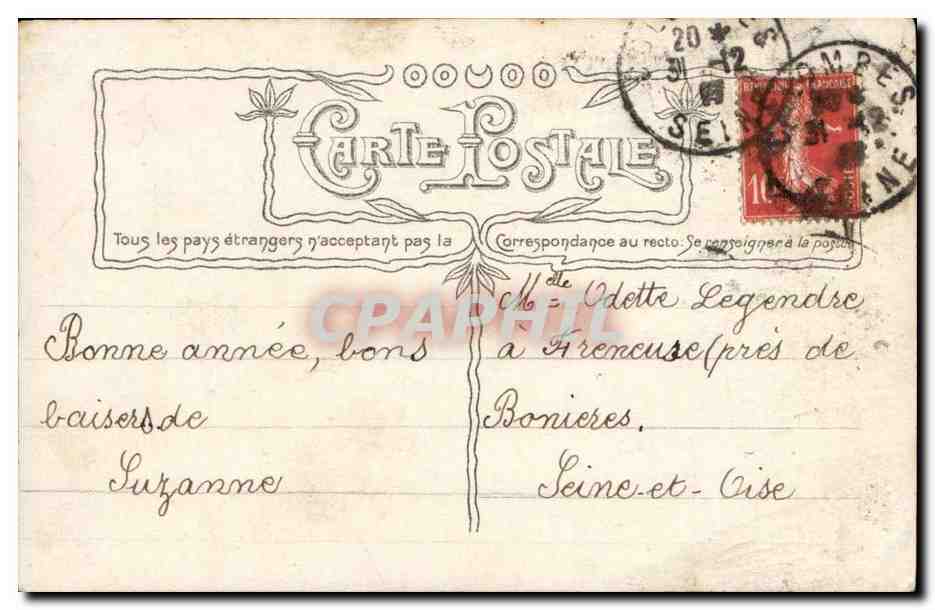 20 *
31 -12
SEINE
31 -12
SEINE
REPUBLIQUE FRANÇAISE
10
POSTES
CARTE POSTALE
Tous les pays étrangers n'acceptant pas la Correspondance au recto: Se renseigner à la poste
CPAPHIL
Melle Odette Legendre
à Freneuse (près de
Bonieres.
Seine-et-Oise
Bonne année, bons
baisers de
Suzanne